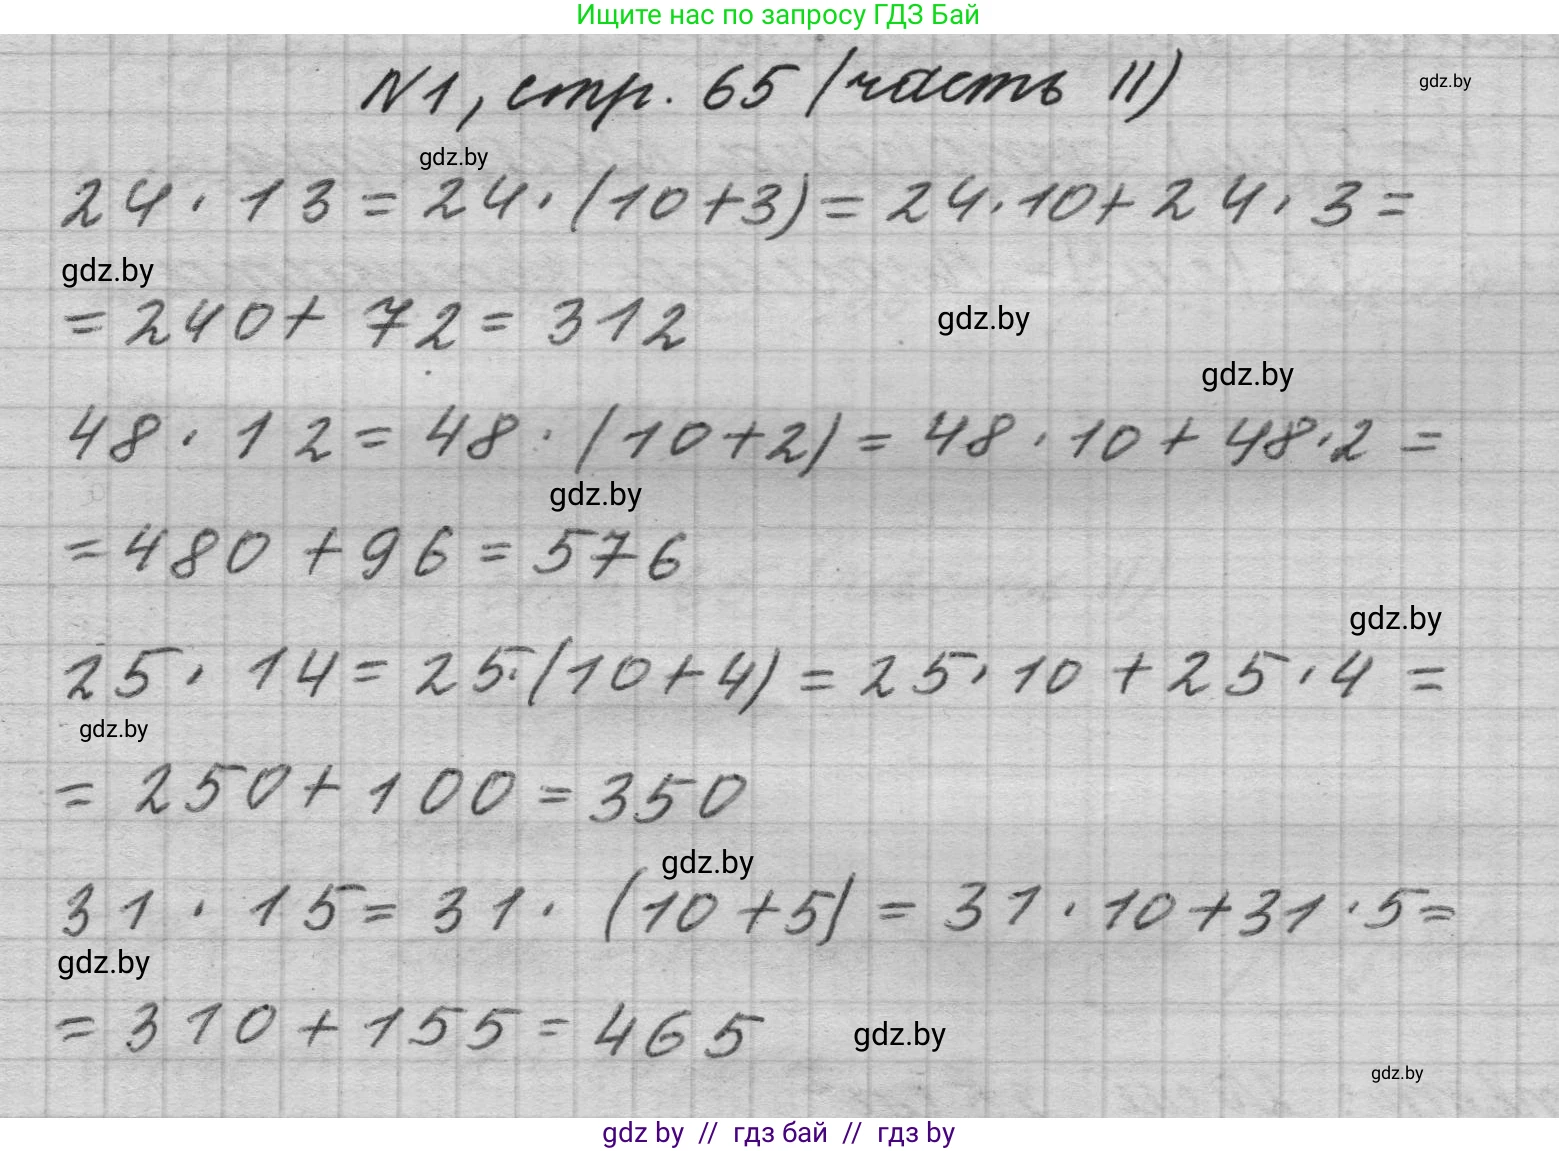 Ищите нас по запросу ГДЗ Бай
N1, стр. 65 (часть II)
gdz.by
gdz.by
24 · 13 = 24 · (10+3) = 24 · 10 + 24 · 3 =
gdz.by
= 240 + 72 = 312
gdz.by
gdz.by
48 · 12 = 48 · (10+2) = 48 · 10 + 48 · 2 =
gdz.by
= 480 + 96 = 576
gdz.by
25 · 14 = 25 · (10+4) = 25 · 10 + 25 · 4 =
gdz.by
= 250 + 100 = 350
gdz.by
31 · 15 = 31 · (10+5) = 31 · 10 + 31 · 5 =
gdz.by
= 310 + 155 = 465
gdz.by
gdz.by
gdz by // гдз бай // гдз by